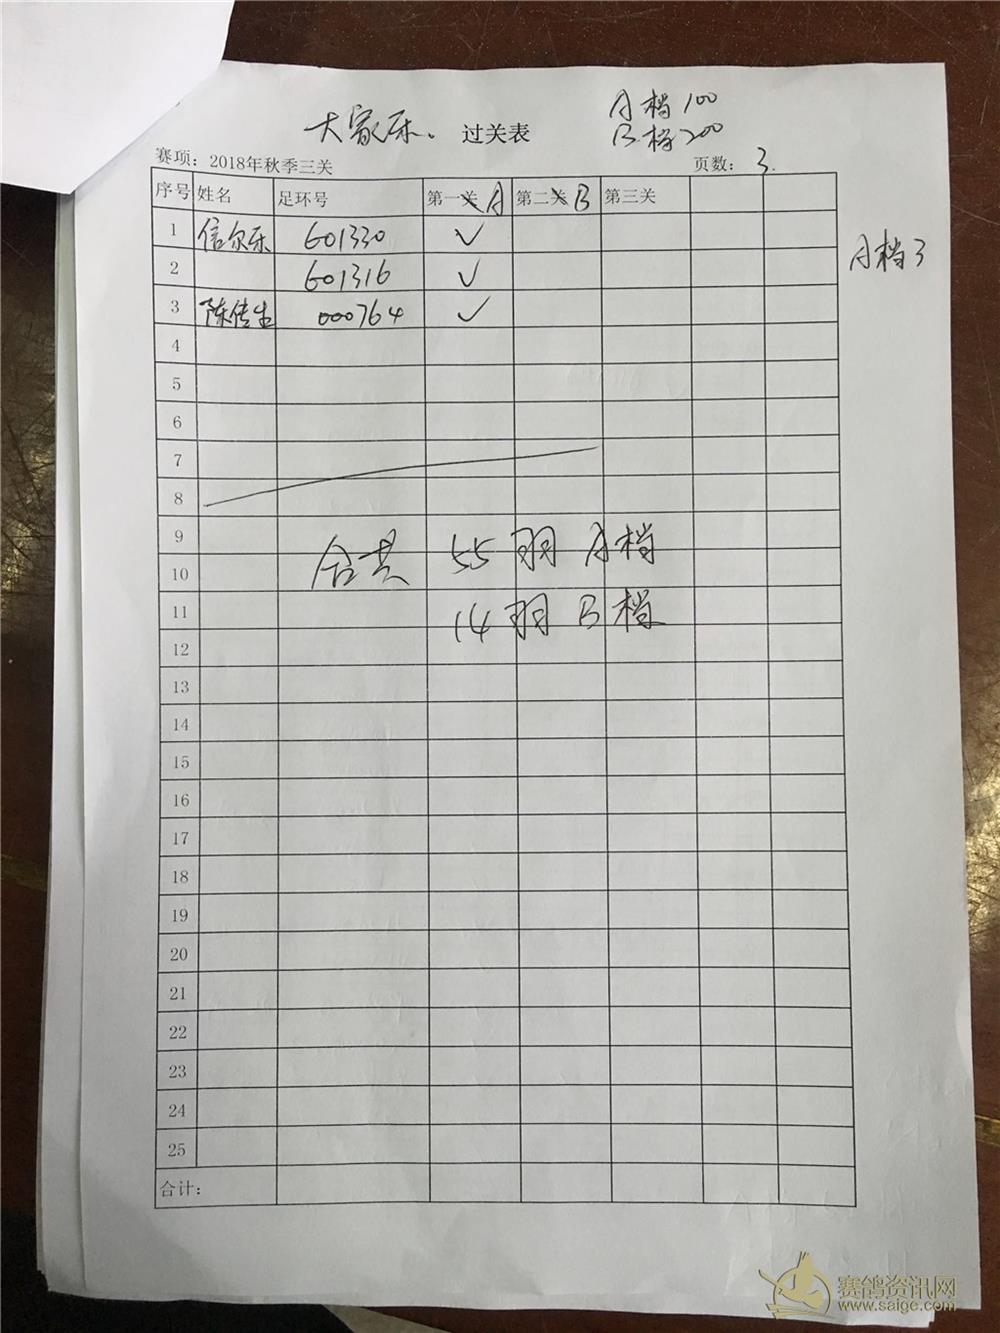 大家乐. 过关表
A档100
B档200
赛项：2018年秋季三关
页数：3.
序号 姓名 足环号 第一关A 第二关B 第三关
1 信尔乐 601330 ✓
A档3
2 601316 ✓
3 陈传生 000764 ✓
4
5
6
7
8
9
合共 55羽A档
10
11
14羽B档
12
13
14
15
16
17
18
19
20
21
22
23
24
25
合计：
赛鸽资讯网
www.saige.com